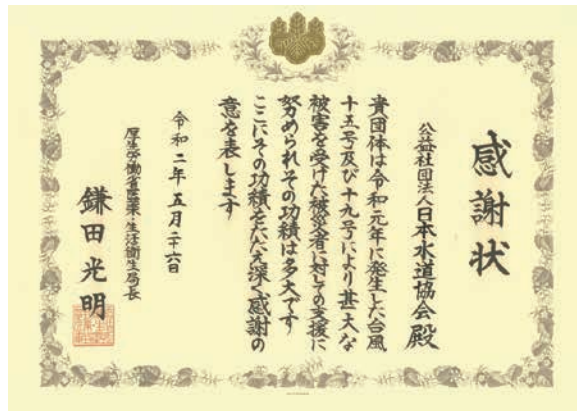 感謝状
公益社団法人日本水道協会殿
貴団体は令和元年に発生した台風
十五号及び十九号により甚大な
被害を受けた被災者に対しての支援に
努められその功績は多大です
ここにその功績をたたえ深く感謝の
意を表します
令和二年五月二十六日
厚生労働省医薬・生活衛生局長
鎌田光明